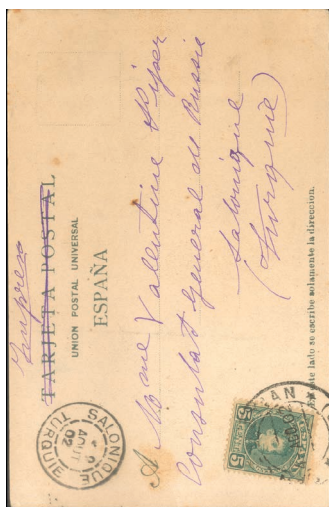 Impreso
TARJETA POSTAL
UNION POSTAL UNIVERSAL
ESPAÑA
A Mme Valentine
Consulat General de Russie
Salonique
(Turquie)
En este lado se escribe solamente la dirección.
SALONIQUE
AOUT
TURQUIE
5 5